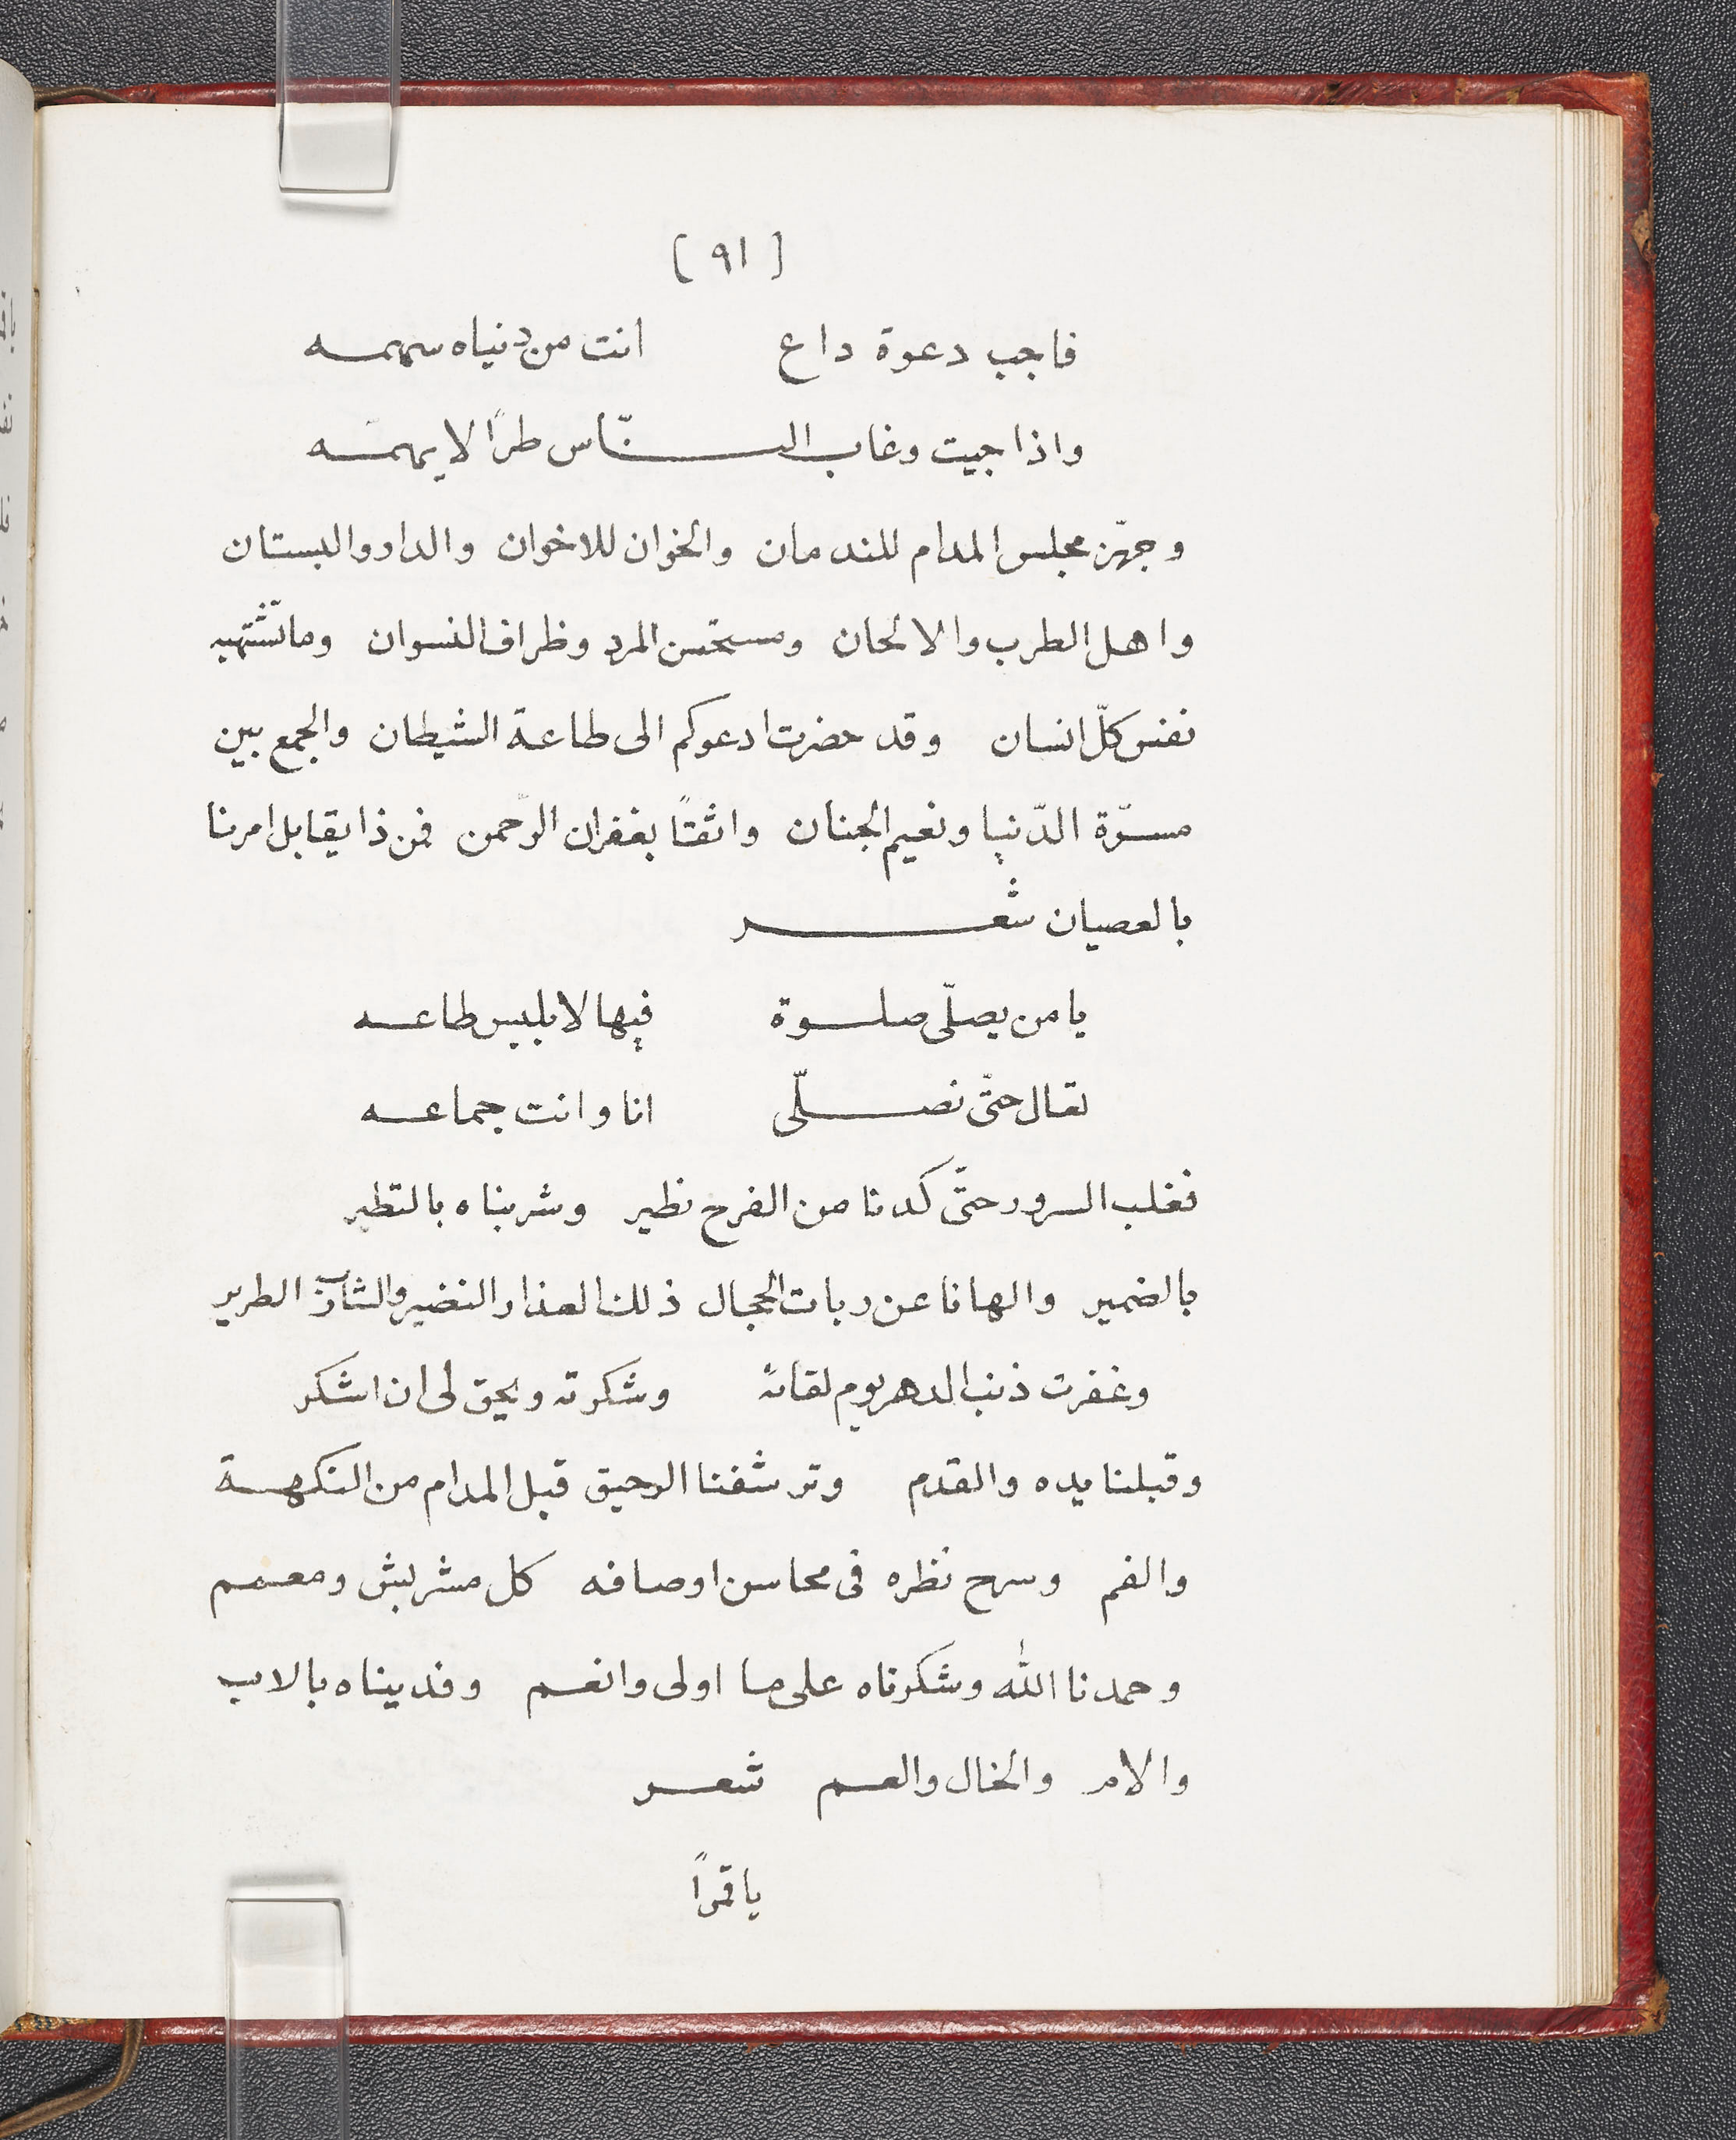 [ ٩١ ]
فاجب دعوة داع انت من دنياه سهمه
واذا جيت وغاب النّاس طرًا لا يهمّه
وجهّز مجلس المدام للندمان والخوان للاخوان والدار والبستان
واهل الطرب والالحان ومستحسن المرد وظراف النسوان وما تشتهيه
نفس كلّ انسان وقد حضرت ادعوكم الى طاعة الشيطان والجمع بين
مسرّة الدّنيا ونعيم الجنان واثقتًا بغفران الرّحمن فمن ذا يقابل امرنا
بالعصيان شعر
يا من يصلّى صلوة فيها لابليس طاعه
تعال حتّى نصلّى انا وانت جماعه
فغلب السرور حتّى كدنا من الفرح نطير وشربناه بالتطير
بالضمير والهانا عن ربات الحجال ذلك العذار النضير والشارب الطرير
وغفرت ذنب الدهر يوم لقائه وشكرته ويحق لى ان اشكر
وقبلنا يده والقدم وترشفنا الرحيق قبل المدام من النكهة
والفم وسرح نظره فى محاسن اوصافه كل مشربش ومعمم
وحمدنا اللّٰه وشكرناه على ما اولى وانعم وفديناه بالاب
والام والخال والعم شعر
يا قمرًا